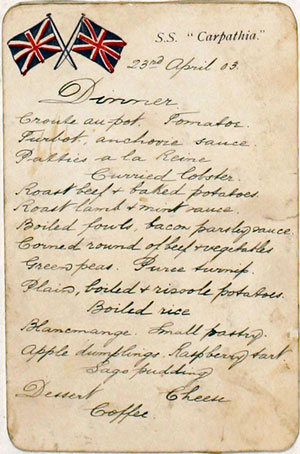 S.S. "Carpathia."
23rd April 03.
Dinner
Croute au pot. Tomatoe.
Turbot, anchovie sauce
Patties a la Reine
Curried lobster.
Roast beef & baked potatoes.
Roast lamb & mint sauce
Boiled fowls, bacon parsley sauce
Corned round of beef & vegetables
Green peas. Puree turnip.
Plain, boiled & rissole potatoes.
Boiled rice
Blancmange. Small pastry
Apple dumplings. Raspberry tart
Sago pudding
Dessert Cheese
Coffee.